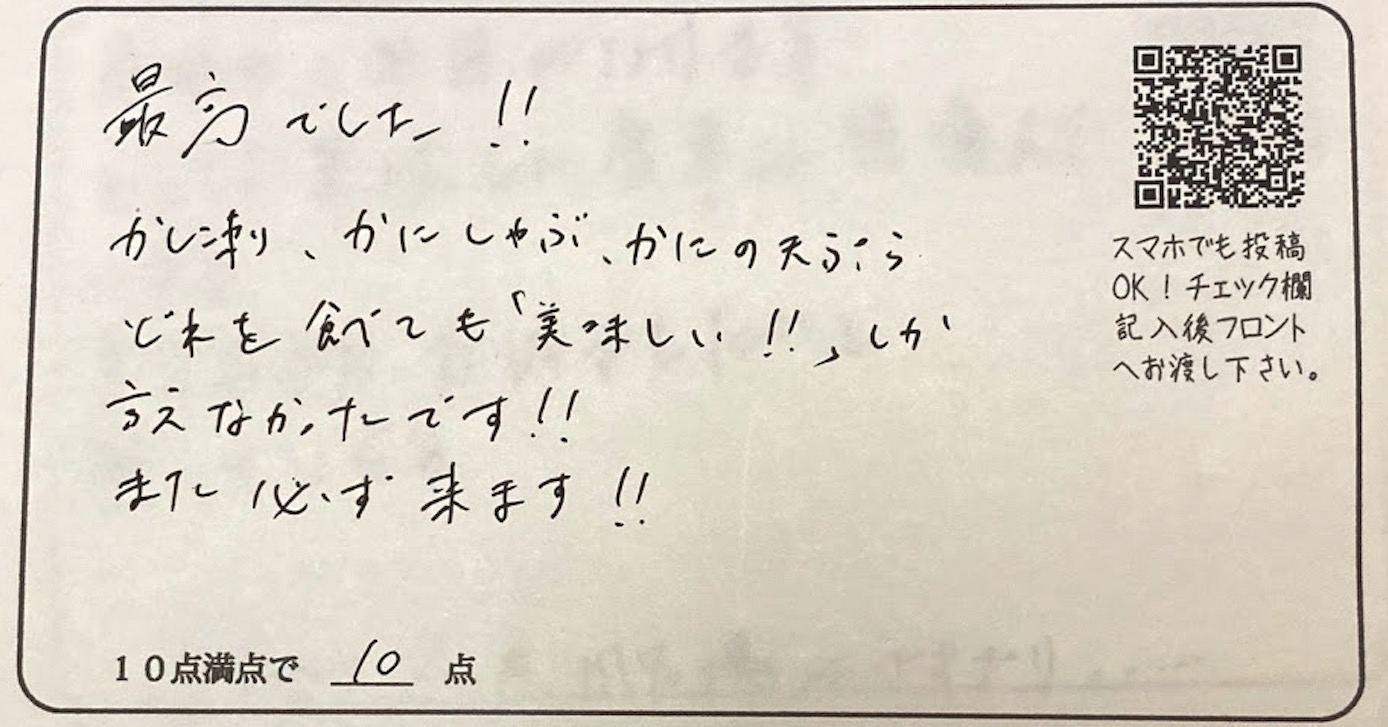 最高でした!!
かに刺、かにしゃぶ、かにの天ぷら
どれを食べても「美味しい!!」しか
言えなかったです!!
また必ず来ます!!
スマホでも投稿
OK！チェック欄
記入後フロント
へお渡し下さい。
10点満点で 10 点